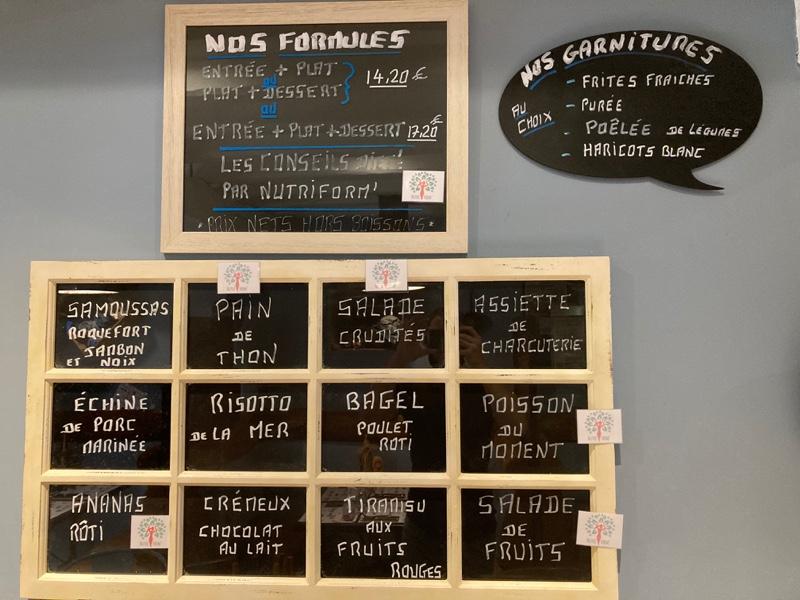 NOS FORMULES
ENTRÉE + PLAT
ou
PLAT + DESSERT
14,20 €
ou
ENTRÉE + PLAT + DESSERT 17,20
LES CONSEILS
PAR NUTRIFORM'
PRIX NETS HORS BOISSONS
NOS GARNITURES
AU CHOIX
- FRITES FRAICHES
- PURÉE
- POÊLÉE DE LÉGUMES
- HARICOTS BLANC
SAMOUSSAS
ROQUEFORT
JAMBON
ET NOIX
PAIN
DE
THON
SALADE
CRUDITÉS
ASSIETTE
DE
CHARCUTERIE
ÉCHINE
DE PORC
MARINÉE
RISOTTO
DE LA MER
BAGEL
POULET
ROTI
POISSON
DU
MOMENT
ANANAS
RÔTI
CRÉMEUX
CHOCOLAT
AU LAIT
TIRAMISU
AUX
FRUITS
ROUGES
SALADE
DE
FRUITS